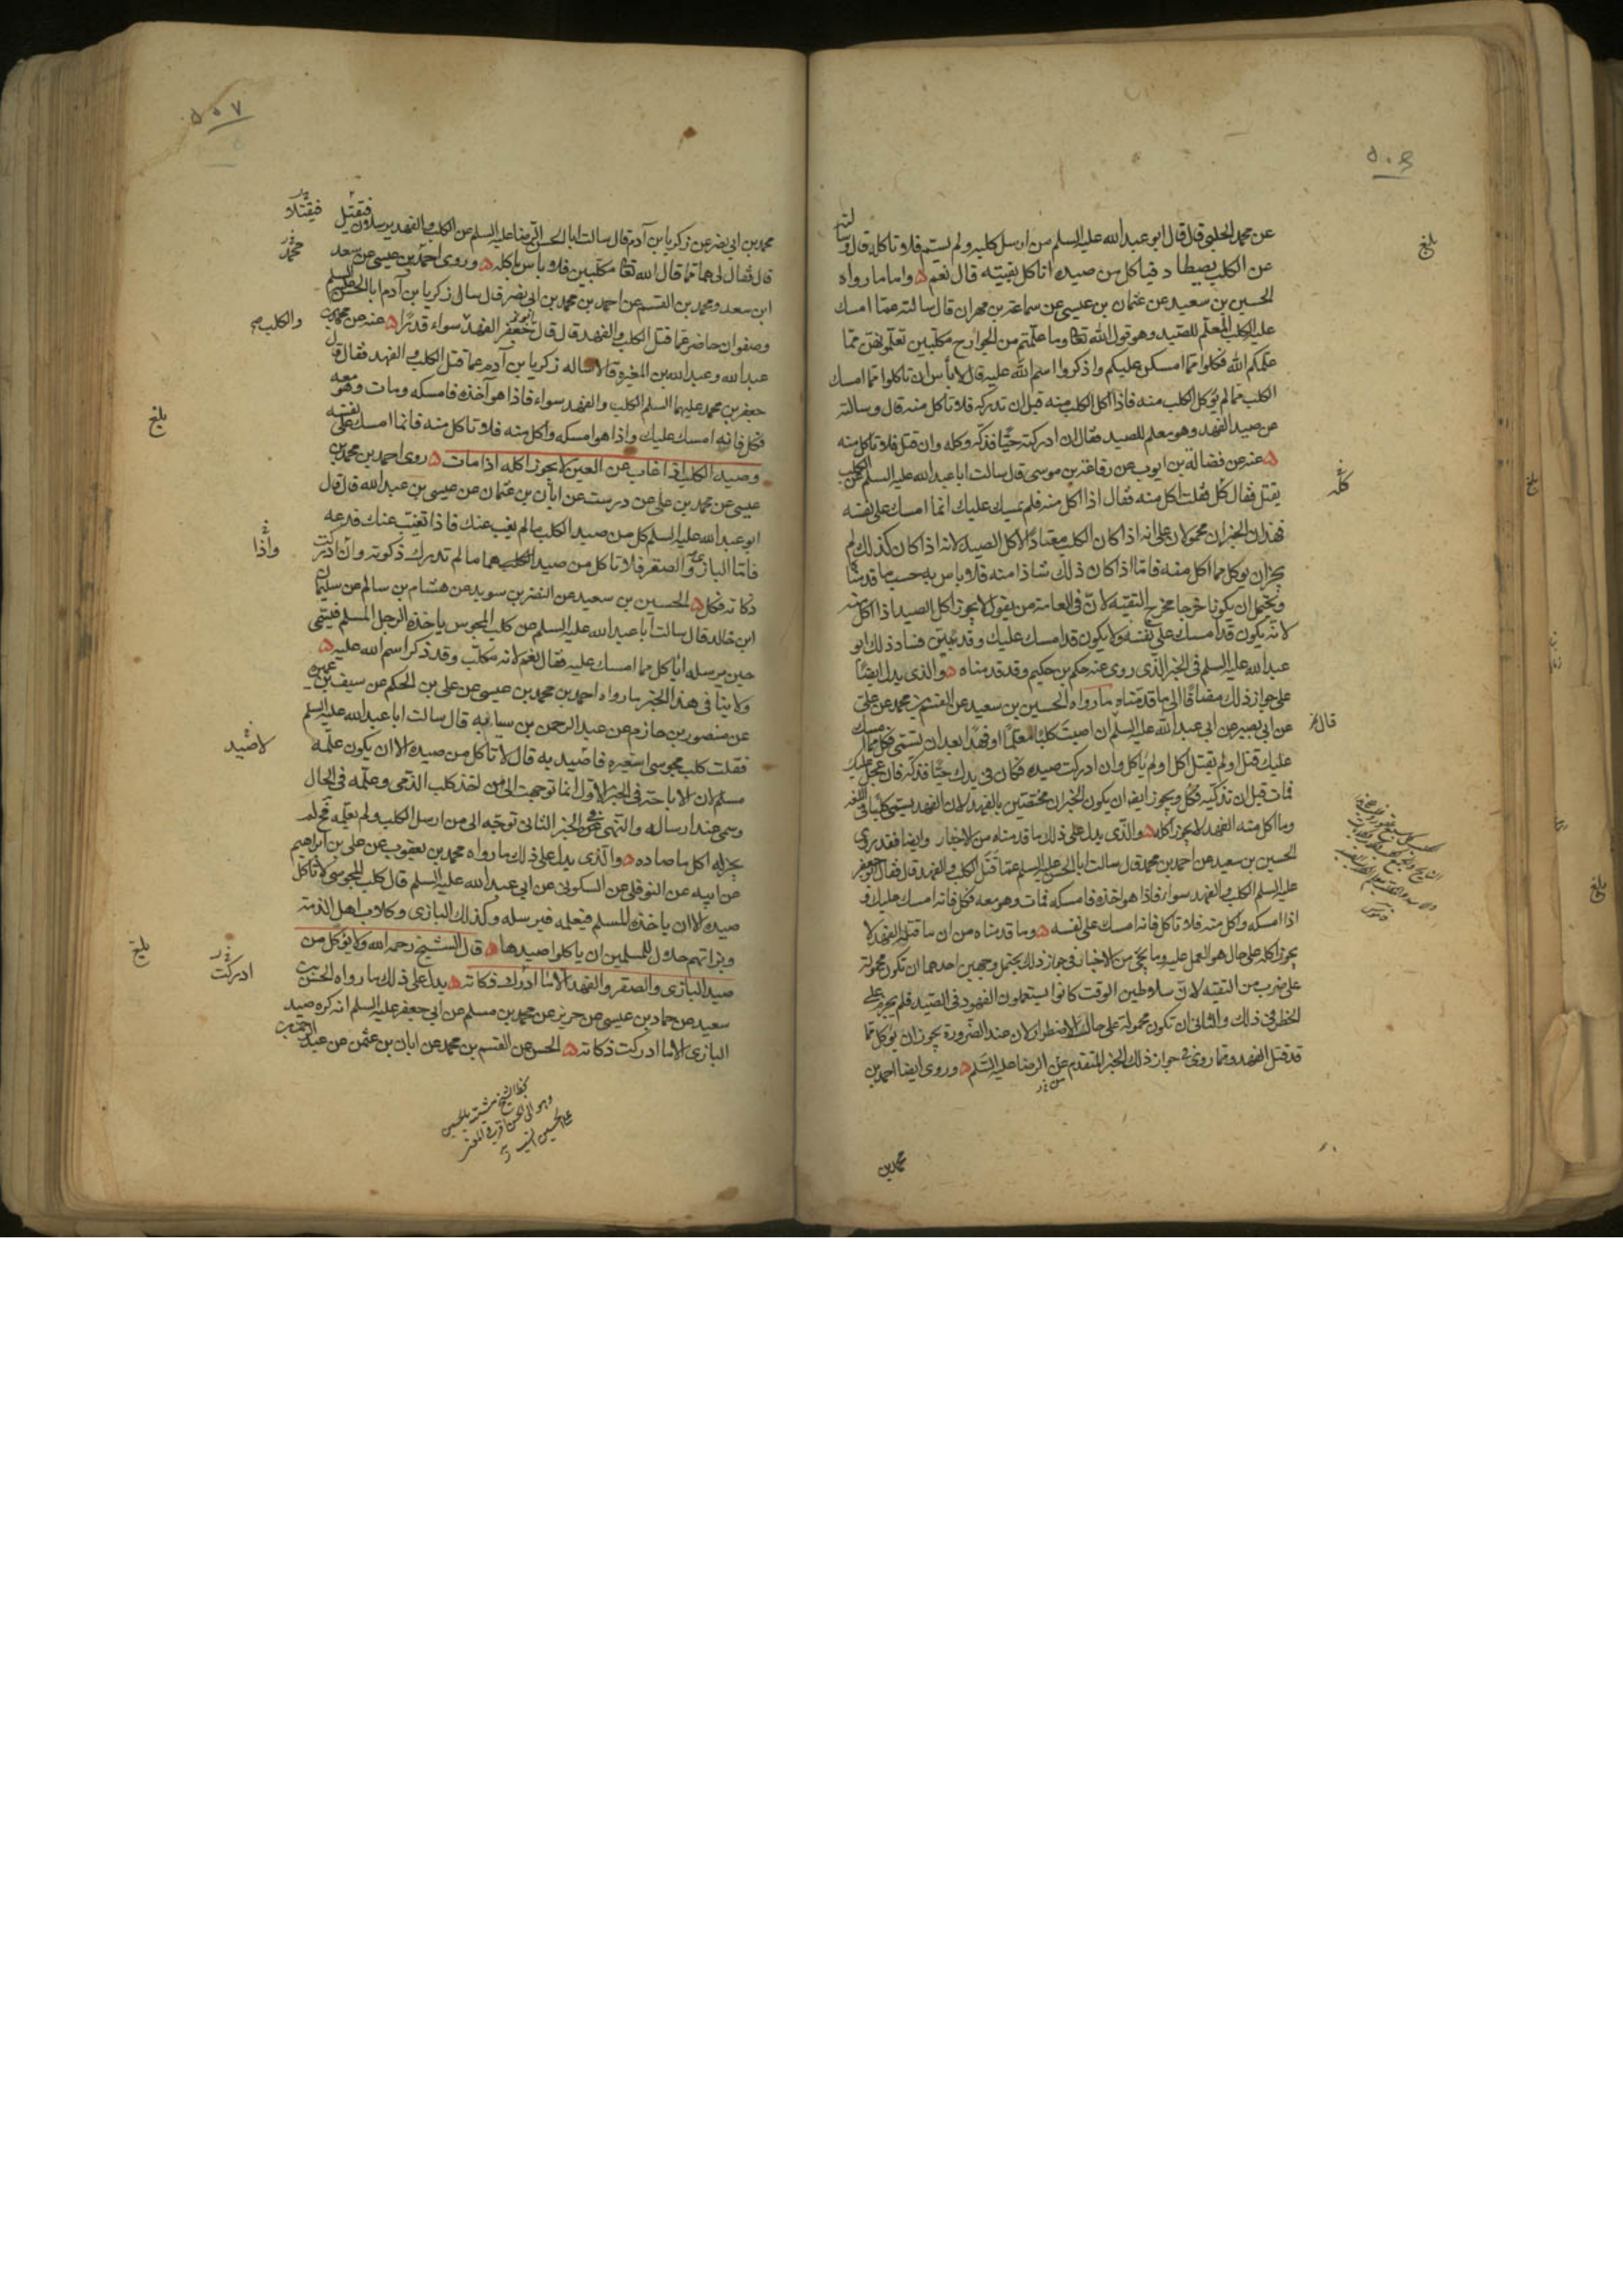 ٥٠٦
عن محمد الحلبي قال قال ابو عبدالله عليه السلم من ارسل كلبه ولم يسم فلا تاكله قال وسالته
عن الكلب يصطاد فياكل من صيده اناكل بقيته قال نعم ه واما ما رواه
الحسين بن سعيد عن عثمان بن عيسى عن سماعة بن مهران قال سالته عما امسك
عليه الكلب المعلم للصيد وهو قول الله تعالى وما علمتم من الجوارح مكلبين تعلمونهن مما
علمكم الله فكلوا مما امسكن عليكم واذكروا اسم الله عليه قال لا باس ان تاكلوا مما امسك
الكلب مما لم يؤكل الكلب منه فاذا اكل الكلب منه قبل ان تدركه فلا تاكل منه قال وسالته
عن صيد الفهد وهو معلم للصيد فقال ان ادركته حيا فذكه وكله وان قتل فلا تاكل منه
ه عنه عن فضالة بن ايوب عن رفاعة بن موسى قال سالت ابا عبدالله عليه السلم عن الكلب
يقتل فقال كل فقلت اكل منه فقال اذا اكل منه فلم يمسك عليك انما امسك على نفسه
فهذان الخبران محمولان على انه اذا كان الكلب معتادا لاكل الصيد لانه اذا كان كذلك لم
يجز ان يوكل مما اكل منه فاما اذا كان ذلك شاذا منه فلا باس به حسب ما قدمنا
ويحتمل ان يكونا خرجا مخرج التقية لان في العامة من يقول لا يجوز اكل الصيد اذا اكل منه
لانه يكون قد امسك على نفسه ولا يكون قد امسك عليك وقد بين فساد ذلك ابو
عبدالله عليه السلم في الخبر الذي روى عنه حكم بن حكيم وقد قدمناه ه والذي يدل ايضا
على جواز ذلك مضافا الى ما قدمناه ما رواه الحسين بن سعيد عن القسم بن محمد عن علي
عن ابي بصير عن ابي عبدالله عليه السلم ان اصبت كلبا معلما او فهدا بعد ان تسمي فكل مما امسك
عليك قتل او لم يقتل اكل او لم ياكل وان ادركت صيده فكان في يدك حيا فذكه فان عجل عليك
فمات قبل ان تذكيه فكل ويجوز ايضا ان يكون الخبران مختصين بالفهد لان الفهد يسمى كلبا في اللغة
وما اكل منه الفهد لا يجوز اكله ه والذي يدل على ذلك ما قدمناه من الاخبار وايضا فقد روى
الحسين بن سعيد عن احمد بن محمد قال سالت ابا الحسن عليه السلم عما قتل الكلب والفهد قال فقال ابو جعفر
عليه السلم الكلب والفهد سواء فاذا هو اخذه فامسكه فمات وهو معه فكل فانه امسك عليك و
اذا امسكه واكل منه فلا تاكل فانه امسك على نفسه ه وما قدمناه من ان ما قتله الفهد لا
يجوز اكله على حال هو العمل عليه وما يجئ من الاخبار في جواز ذلك يحتمل وجهين احدهما ان تكون محمولة
على ضرب من التقية لان سلاطين الوقت كانوا يستعملون الفهود في الصيد فلم يجز على
الخطر في ذلك والثاني ان تكون محمولة على حال الاضطرار لان عند الضرورة يجوز ان يؤكل مما
قد قتل الفهد ومما روى في جواز ذلك الخبر المتقدم عن الرضا عليه السلم ه وروى ايضا احمد بن
محمد بن
بلغ
كله
قال
٥٠٧
محمد بن ابي نصر عن زكريا بن آدم قال سالت ابا الحسن الرضا عليه السلم عن الكلب والفهد يرسلان فيقتل
قال فقال لي هما مما قال الله تعالى مكلبين فلا باس باكله ه وروى احمد بن عيسى عن سعد
ابن سعد ومحمد بن القسم عن احمد بن محمد بن ابي نصر قال سال زكريا بن آدم ابا الحسن عليه السلم
وصفوان حاضر عما قتل الكلب والفهد قال قال جعفر الفهد سواء قدرا ه عنه عن محمد بن
عبدالله وعبدالله بن المغيرة قالا ساله زكريا بن آدم عما قتل الكلب والفهد فقال قال
جعفر بن محمد عليهما السلم الكلب والفهد سواء فاذا هو آخذه فامسكه ومات وهو معه
فكل فانه امسك عليك واذا هو امسكه واكل منه فلا تاكل منه فانما امسك على نفسه
وصيد الكلب اذا غاب عن العين لا يجوز اكله اذا مات ه روى احمد بن محمد بن
عيسى عن محمد بن علي عن درست عن ابان بن عثمان عن عيسى بن عبدالله قال قال
ابو عبدالله عليه السلم كل من صيد الكلب ما لم يغب عنك فاذا تغيب عنك فدعه
فاما البازي والصقر فلا تاكل من صيدهما ما لم تدرك ذكوته وان ادركت
ذكاته فكل ه الحسين بن سعيد عن النضر بن سويد عن هشام بن سالم عن سليمان
ابن خالد قال سالت ابا عبدالله عليه السلم عن كلب المجوس ياخذه الرجل المسلم فيسمي
حين يرسله اياكل مما امسك عليه فقال نعم لانه مكلب وقد ذكر اسم الله عليه ه
ولا ينافي هذا الخبر ما رواه احمد بن محمد بن عيسى عن علي بن الحكم عن سيف بن عميرة
عن منصور بن حازم عن عبدالرحمن بن سيابة قال سالت ابا عبدالله عليه السلم
فقلت كلب مجوسي استعيره فاصيد به قال لا تاكل من صيده الا ان يكون علمه
مسلم لان الاباحة في الخبر الاول انما توجهت الى من اخذ كلب الذمي وعلمه في الحال
وسمى عند ارساله والنهي في الخبر الثاني توجه الى من ارسل الكلب ولم يعلمه فح لم
يجز له اكل ما صاده ه والذي يدل على ذلك ما رواه محمد بن يعقوب عن علي بن ابراهيم
عن ابيه عن النوفلي عن السكوني عن ابي عبدالله عليه السلم قال كلب المجوسي لا تاكل
صيده الا ان ياخذه المسلم فيعلمه فيرسله وكذلك البازي وكلاب اهل الذمة
وبزاتهم حلال للمسلمين ان ياكلوا صيدها ه قال الشيخ رحمه الله ولا يؤكل من
صيد البازي والصقر والفهد الا ما ادرك ذكاته ه يدل على ذلك ما رواه الحسين بن
سعيد عن حماد بن عيسى عن حريز عن محمد بن مسلم عن ابي جعفر عليه السلم انه كره صيد
البازي الا ما ادركت ذكاته ه الحسن عن القسم بن محمد عن ابان بن عثمن عن عبد الرحمن بن
فيقتلا
محمد
والكلب
بلغ
واذا
لاصيد
ادركت
بلغ